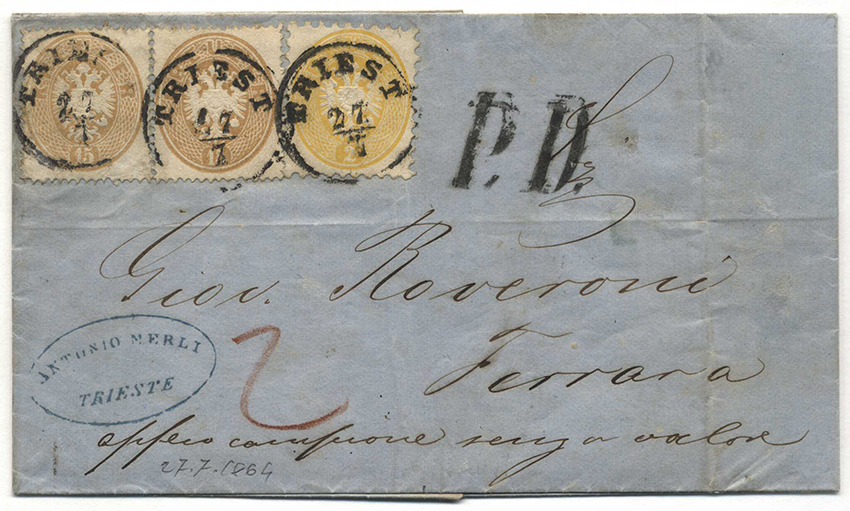 TRIEST
27
7
TRIEST
27
7
TRIEST
27
7
15
P.D.
Giov. Roveroni
Ferrara
ANTONIO MERLI
TRIESTE
2
campione senza valore
27.7.1864